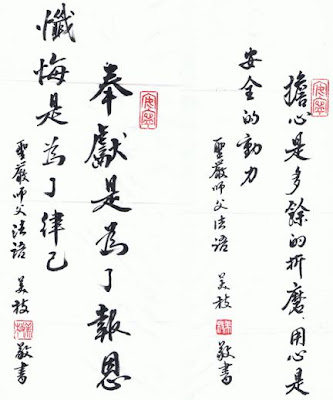 擔心是多餘的折磨、用心是
安全的動力
聖嚴师父法语 美枝 敬書
奉獻是為了報恩
懺悔是為了律己
聖嚴师父法语 美枝 敬書